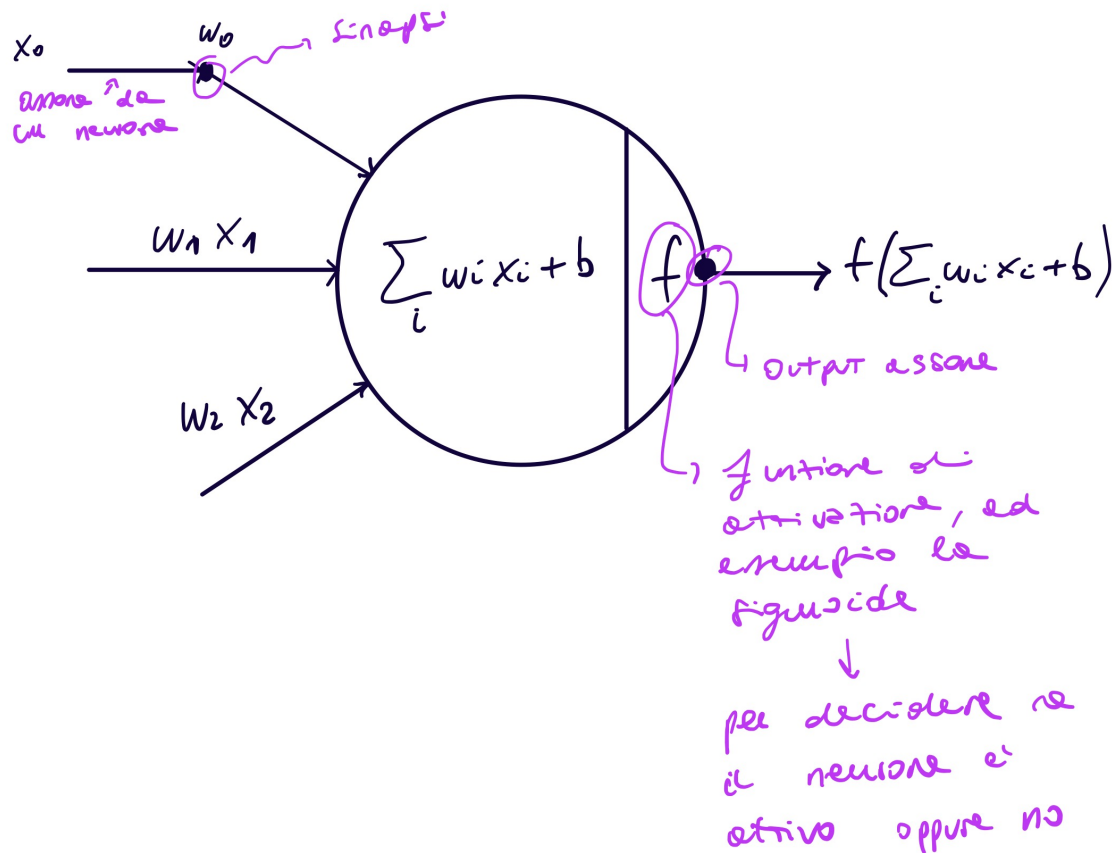 x₀
w₀
sinapsi
assone da
un neurone
w₁ x₁
∑ᵢ wᵢxᵢ + b
f
f(∑ᵢ wᵢxᵢ + b)
output assone
w₂ x₂
funzione di
attivazione, ad
esempio la
sigmoide
per decidere se
il neurone è
attivo oppure no